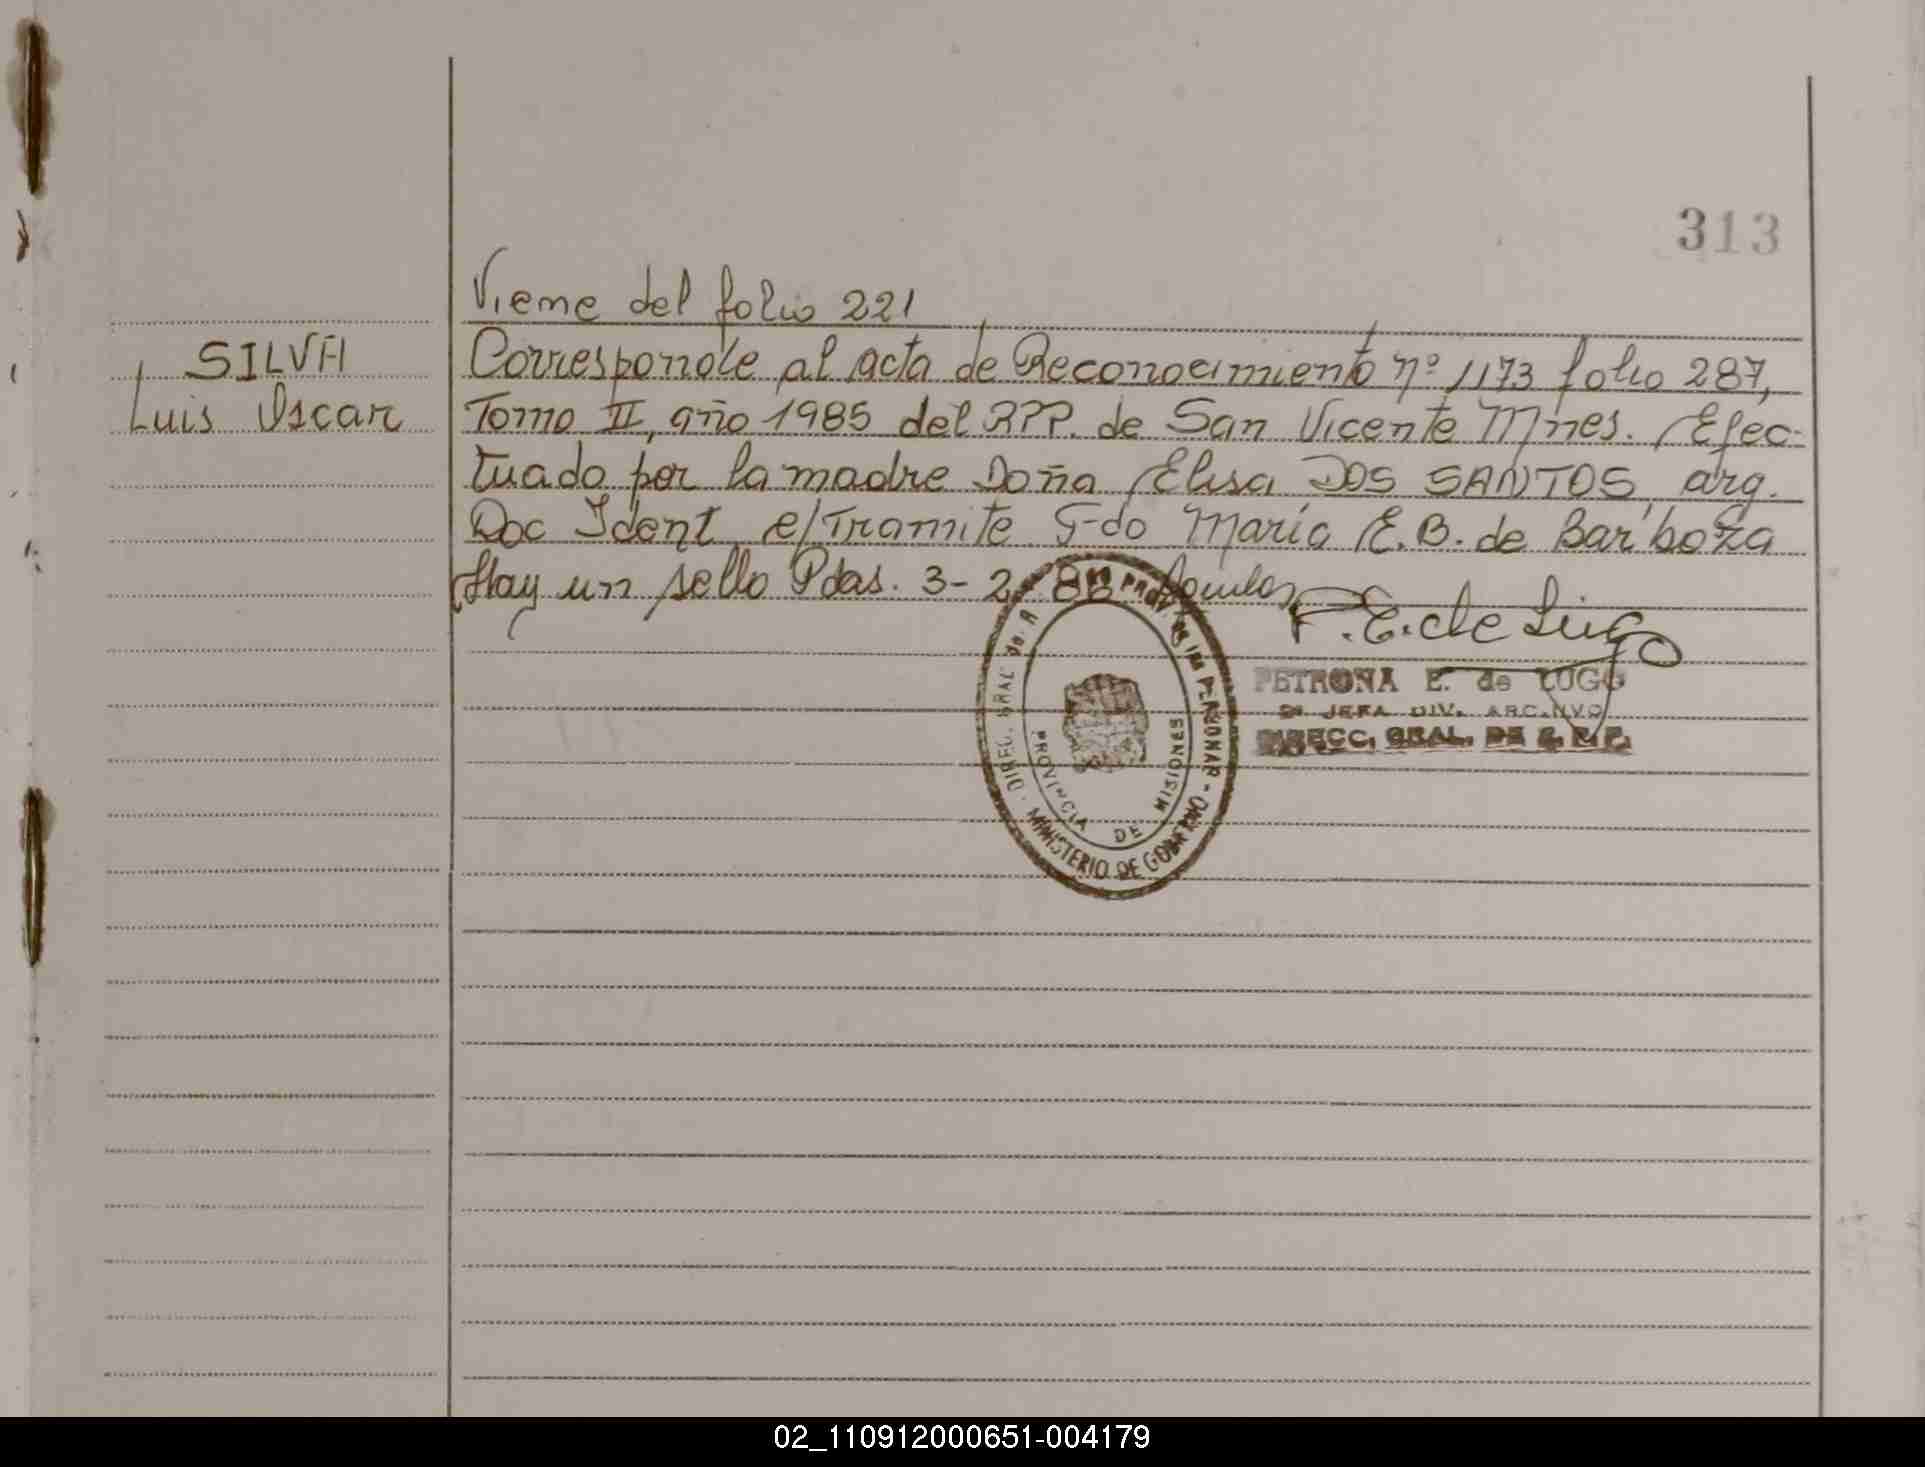 313
Viene del folio 221
SILVA
Luis Oscar
Corresponde al acta de Reconocimiento nº 1173 folio 287,
Tomo II, año 1985 del RPP. de San Vicente Mnes. Efec-
tuado por la madre Doña Elisa DOS SANTOS, arg.
Doc Ident e/Tramite F-do María E.B. de Barboza
Hay un sello Pdas. 3-2-88
P.E. de Lugo
PETRONA E. de LUGO
JEFA DIV. ARCHIVO
DIRECC. GRAL. DE R. P. P.
DIREC. GRAL de R PROV. DE LAS PERSONAS - MINISTERIO DE GOBIERNO
PROVINCIA DE MISIONES
02_110912000651-004179